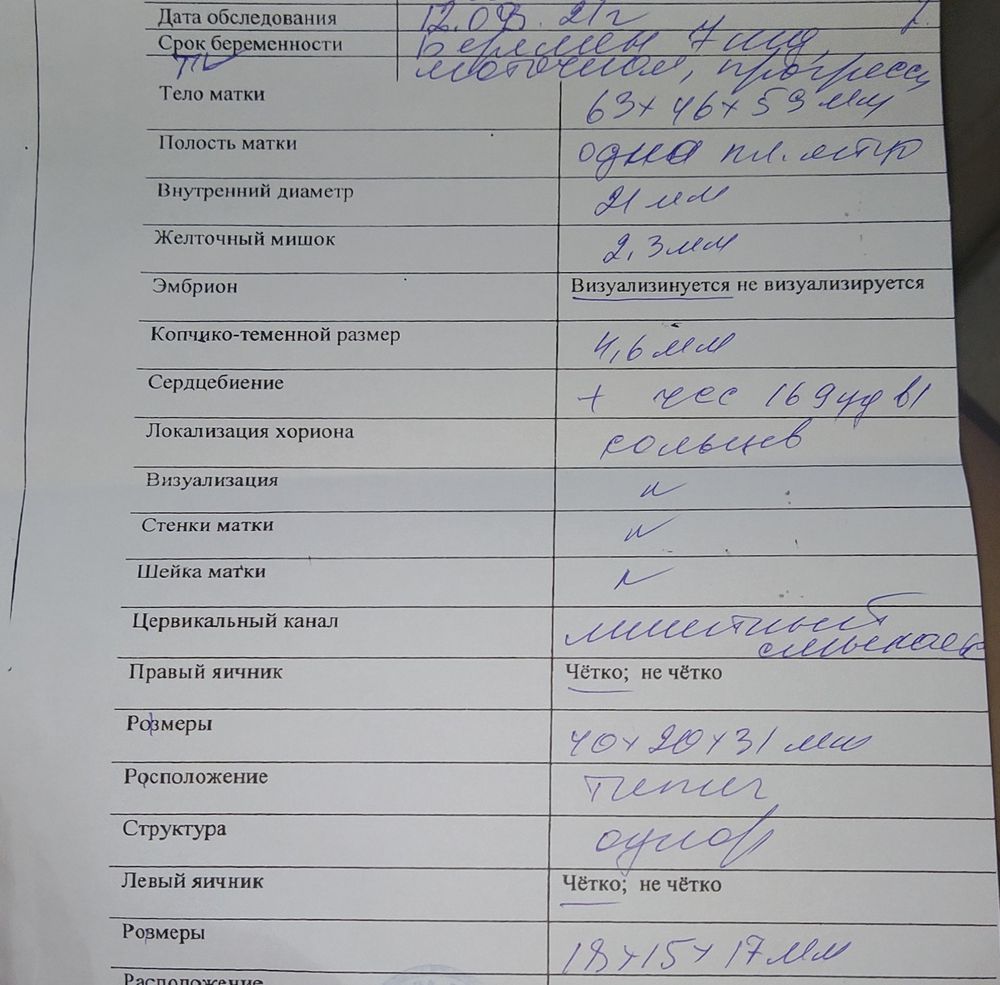 Дата обследования 12.09.21г
Срок беременности Беремен 7 нед,
маточная, прогресс
Тело матки 63×46×59мм
Полость матки одно пл. яйцо
Внутренний диаметр 21 мм
Желточный мишок 2,3мм
Эмбрион Визуализинуется не визуализируется
Копчико-теменной размер 4,6мм
Сердцебиение + чсс 169уд в1
Локализация хориона кольцев
Визуализация N
Стенки матки N
Шейка матки N
Цервикальный канал
Правый яичник Чётко; не чётко
Розмеры 40×20×31 мм
Росположение типич
Структура
Левый яичник Чётко; не чётко
Розмеры 18×15×17мм
Росположение